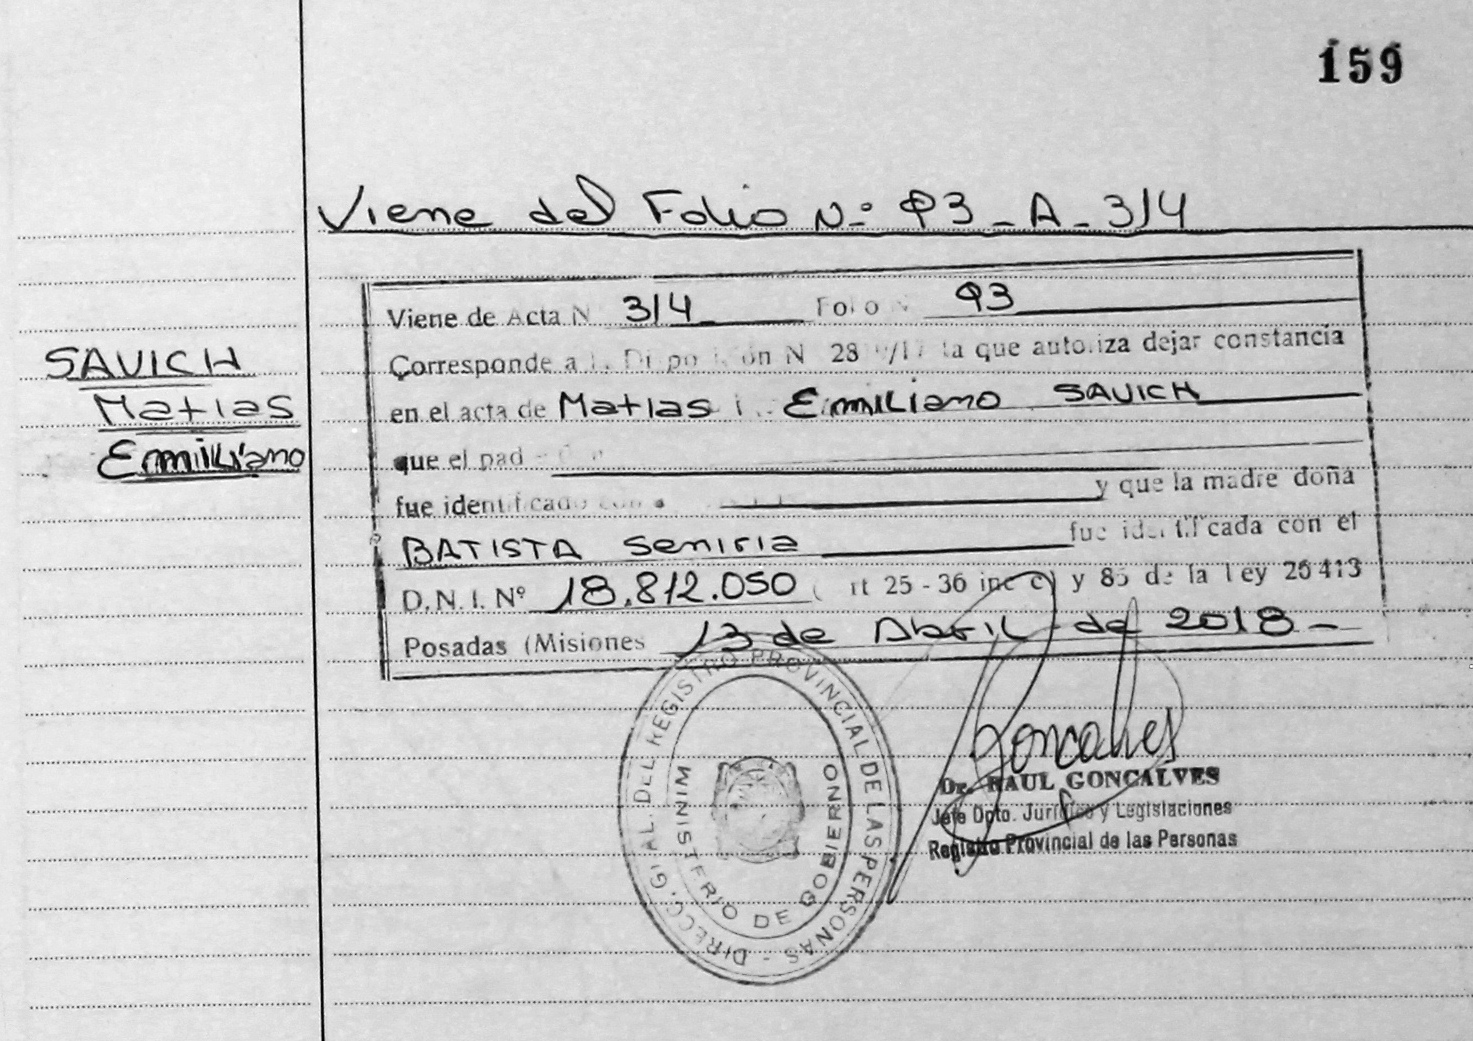 159
Viene del Folio Nº 93 - A - 314
SAVICH
Matias
Emiliano
Viene de Acta N 314 Folio N 93
Corresponde a la Disposición N 28 /17 la que autoriza dejar constancia
en el acta de Matias Emiliano SAVICH
que el pad
fue identificado con y que la madre doña
BATISTA Seniria fue identificada con el
D.N.I. Nº 18.812.050 ( rt 25 - 36 inc c) y 85 de la Ley 26413
Posadas (Misiones 13 de Abril de 2018 -
DIRECC. GRAL. DEL REGISTRO PROVINCIAL DE LAS PERSONAS -
MINISTERIO DE GOBIERNO
Goncalves
Dr. RAUL GONCALVES
Jefe Dpto. Jurídico y Legislaciones
Registro Provincial de las Personas